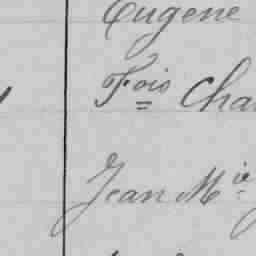 Eugene
Fois Cha
Jean Mie